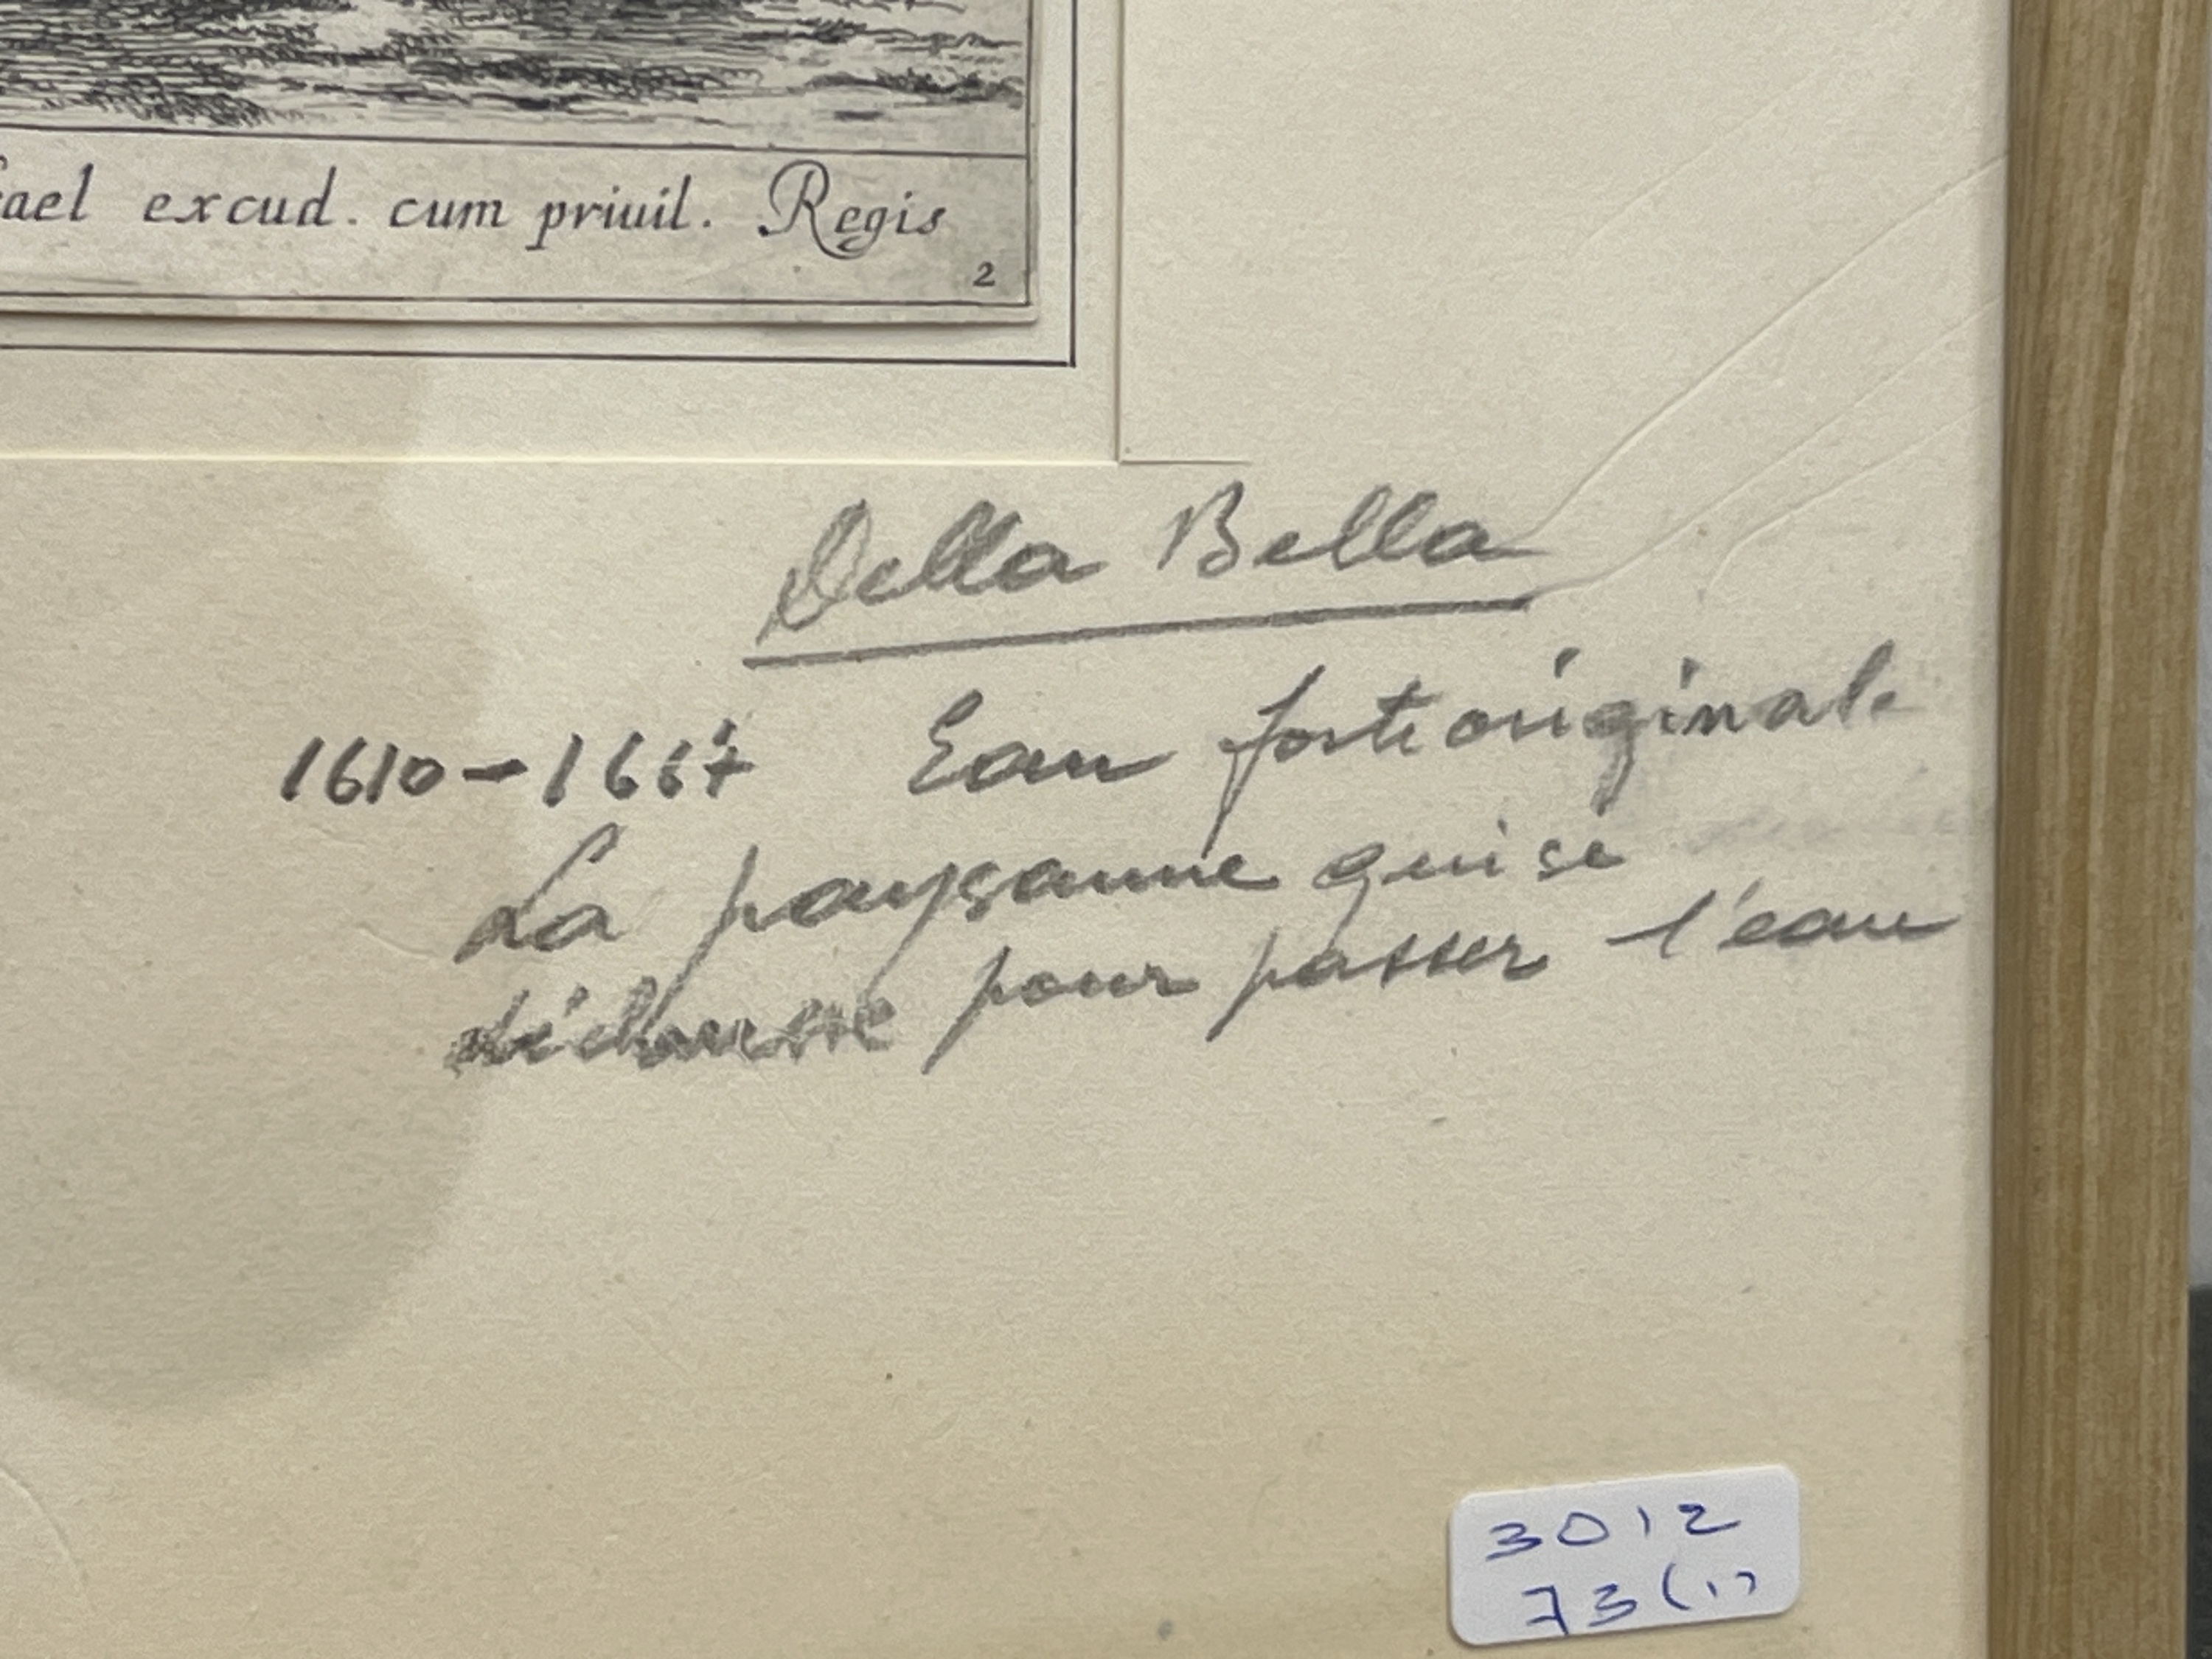 ael excud. cum priuil. Regis
2
Della Bella
1610-1667 Eau forte originale
La paysanne qui se
déchausse pour passer l'eau
3012
73(1)